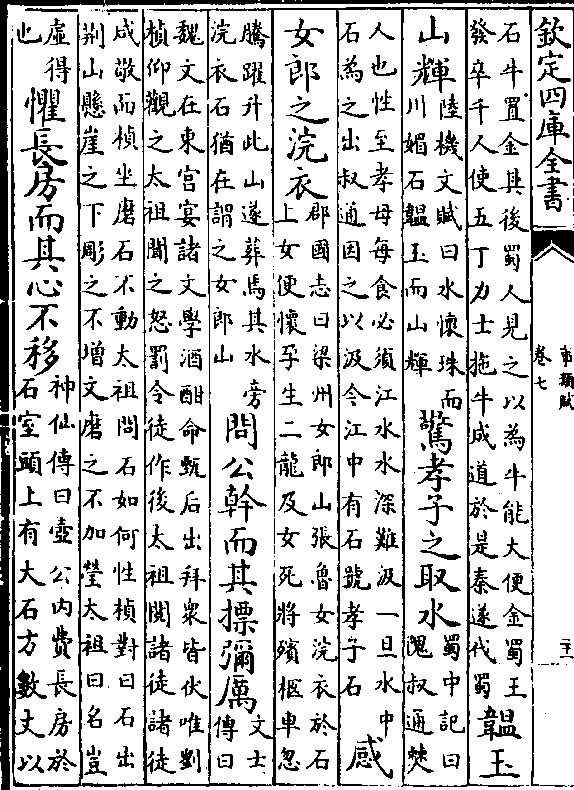 欽定四庫全書
事類賦
卷七
二十一
石牛置金其後蜀人見之以為牛能大便金蜀王
發卒千人使五丁力士拖牛成道於是秦遂伐蜀
韞玉
山輝
陸機文賦曰水懷珠而
川媚石韞玉而山輝
驚孝子之取水
蜀中記曰
隗叔通僰
人也性至孝母每食必須江水水深難汲一旦水中
石為之出叔通因之以汲今江中有石號孝子石
感
女郎之浣衣
郡國志曰梁州女郎山張魯女浣衣於石
上女便懷孕生二龍及女死將殯柩車忽
騰躍升此山遂葬焉其水旁
浣衣石猶在謂之女郎山
問公幹而其摽彌厲
文士
傳曰
魏文在東宮宴諸文學酒酣命甄后出拜衆皆伏唯劉
楨仰觀之太祖聞之怒罰令徒作後太祖閱諸徒諸徒
咸敬而楨坐磨石不動太祖問石如何性楨對曰石出
荆山懸崖之下彫之不增文磨之不加瑩太祖曰名豈
虛得
也
懼長房而其心不移
神仙傳曰壺公内費長房於
石室頭上有大石方數丈以